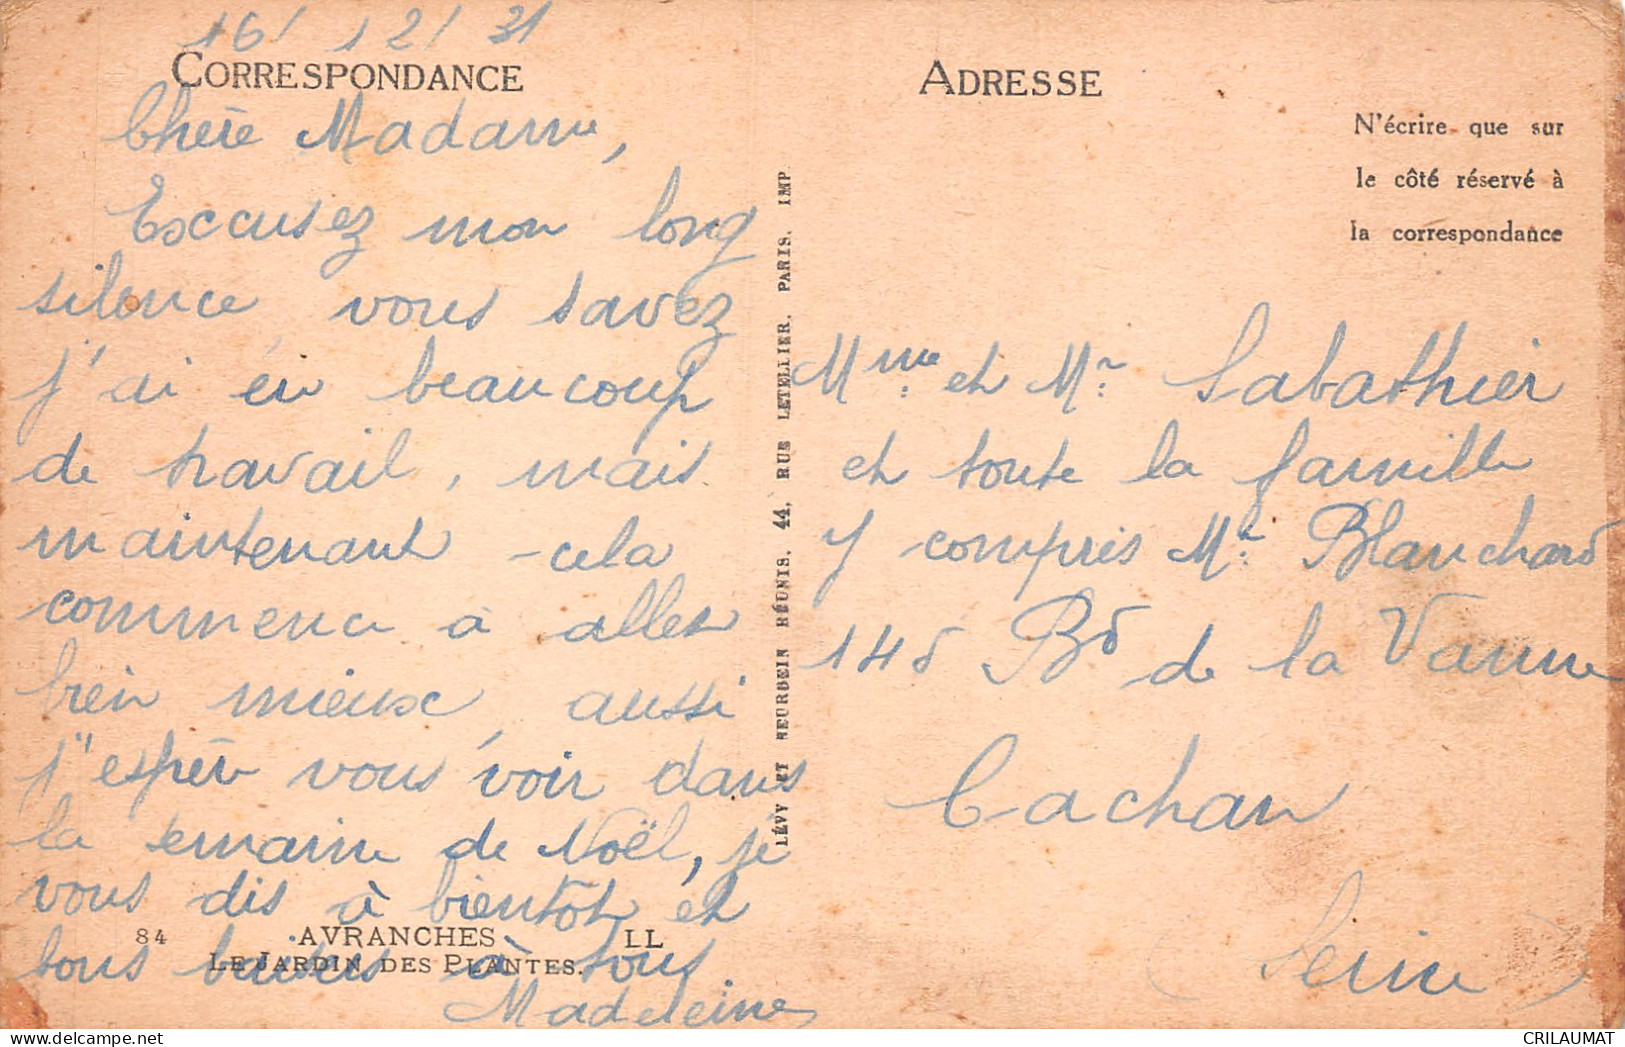 16/ 12/ 31
CORRESPONDANCE
Chère Madame,
Excusez mon long
silence vous savez
j'ai éu beaucoup
de travail, mais
maintenant cela
commence à aller
bien mieux, aussi
j'espère vous voir dans
la semaine de Noël, je
vous dis à bientôt et
bons baisers à tous
Madeleine
84 AVRANCHES LL
LE JARDIN DES PLANTES.
LÉVY ET NEURDEIN RÉUNIS, 44, RUE LETELLIER, PARIS. IMP
ADRESSE
N'écrire que sur
le côté réservé à
la correspondance
Mme et Mr Sabathier
et toute la famille
y compris Mr Blanchard
145 Bd de la Vanne
Cachan
(Seine)
CRILAUMAT